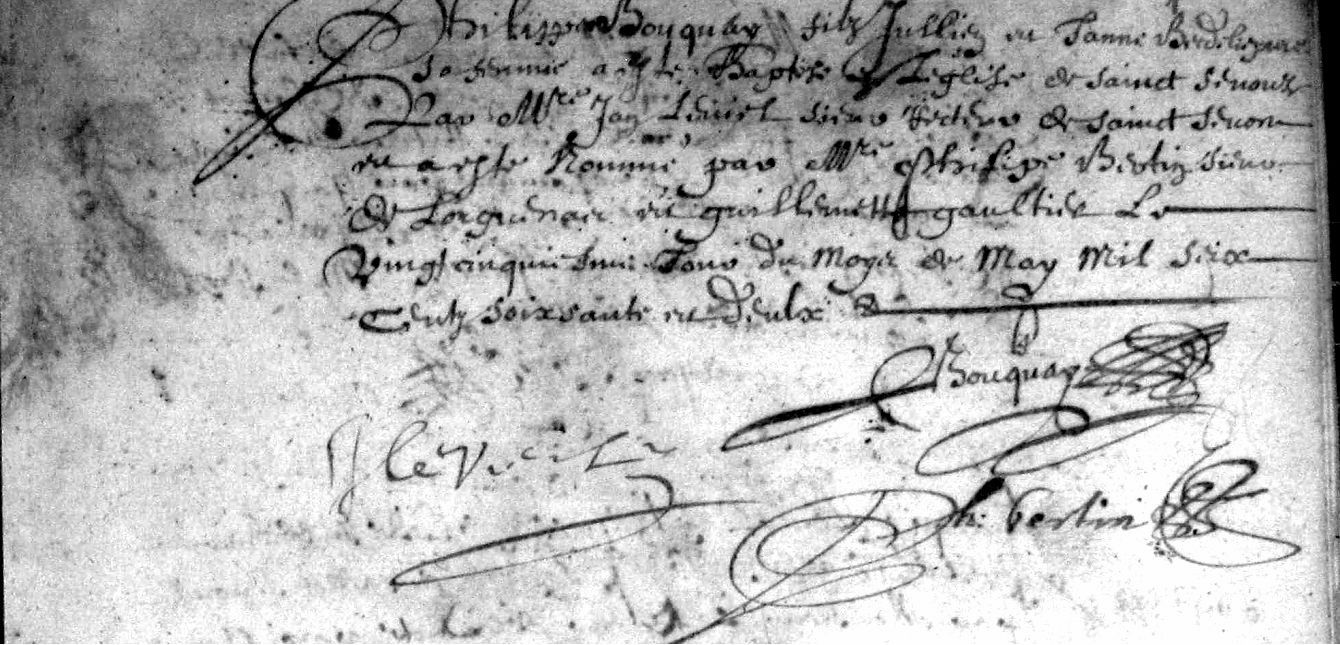 Philippes Bouquay filz Jullien et Janne
sa femme a este Baptisé en L'eglise de sainct Senoux
Par Mre Jan Leveil sieur Recteur de sainct Senou
et a este Nomme par Mre Philipe Bertin sieur
de et guillemette gaultier Le
Vingt cinquiesme Jour du Moys de May Mil seix
Centz soixsante et deulx
Bouquay
J leveil
Ph: bertin